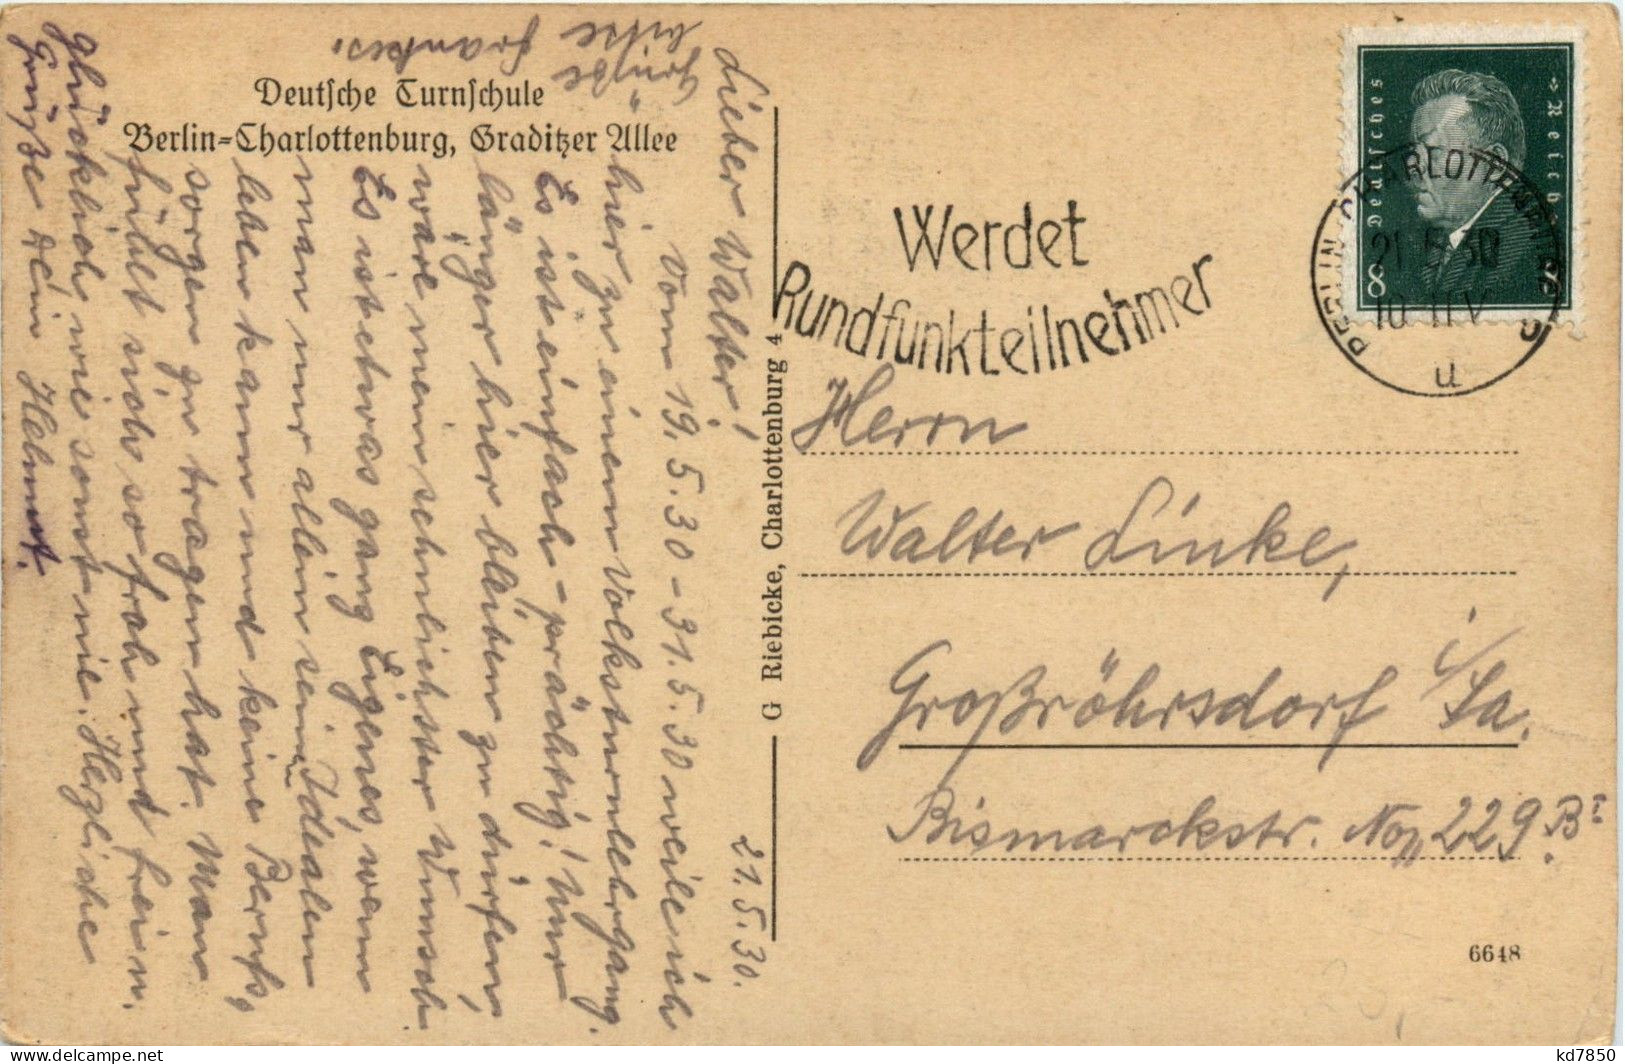 Deutsche Turnschule
Berlin-Charlottenburg, Graditzer Allee
21.5.30.
Lieber Walter!
Vom 19.5.30 - 31.5.30 weile ich
hier zu einem Volksturnlehrgang.
Es ist einfach - prächtig! Nur
länger hier bleiben zu dürfen,
wäre mein sehnlichster Wunsch.
Es ist etwas ganz Eigenes, wenn
man nur allein seinen Idealen
leben kann und keine Berufs-
sorgen zu tragen hat. Man
fühlt sich so froh und frei u.
glücklich wie sonst nie. Herzliche
Grüße Dein Helmut.
Grüße
bitte
Frankes.
G Riebicke, Charlottenburg 4
Werdet
Rundfunkteilnehmer
Deutsches Reich
8
BERLIN-CHARLOTTENBURG
21.5.30
10-11 V
u
Herrn
Walter Linke,
Großröhrsdorf i/Sa.
Bismarckstr. No 229 B
6648
kd7850